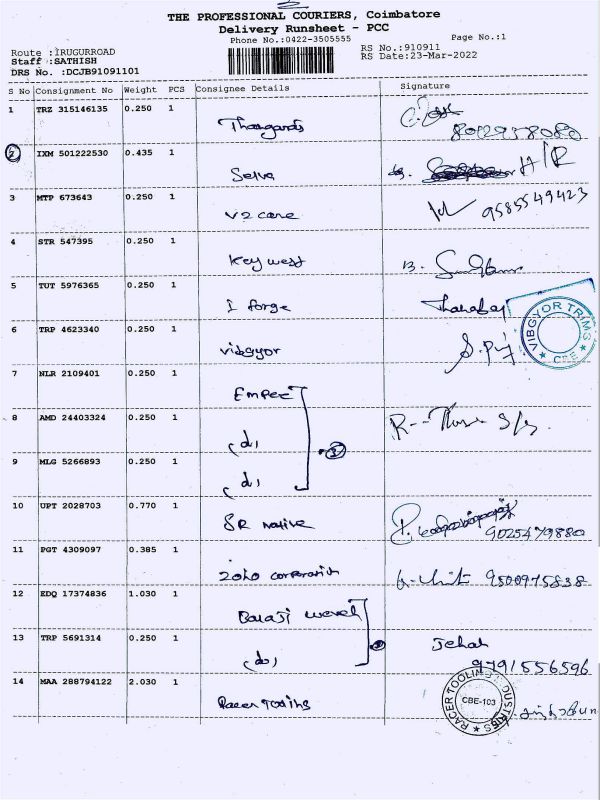 THE PROFESSIONAL COURIERS, Coimbatore
Delivery Runsheet - PCC
Phone No.:0422-3505555
Page No.:1
Route :IRUGURROAD
RS No.:910911
Staff :SATHISH
RS Date:23-Mar-2022
DRS No. :DCJB91091101
S No Consignment No Weight PCS Consignee Details Signature
1 TRZ 315146135 0.250 1
8012938080
2 IXM 501222530 0.435 1
Selva
3 MTP 673643 0.250 1
V2 care 9585549423
4 STR 547395 0.250 1
Key west
5 TUT 5976365 0.250 1
I forge
6 TRP 4623340 0.250 1
vibgyor
VIBGYOR TRIMS
CBE
7 NLR 2109401 0.250 1
Empee
8 AMD 24403324 0.250 1
(d)
9 MLG 5266893 0.250 1
(d)
3
10 UPT 2028703 0.770 1
SR Native 9025479880
11 PGT 4309097 0.385 1
Zoho corporation 9500975838
12 EDQ 17374836 1.030 1
Balaji
13 TRP 5691314 0.250 1
(d)
9791556596
14 MAA 288794122 2.030 1
Racer Toolings
RACER TOOLING INDUSTRIES
CBE-103